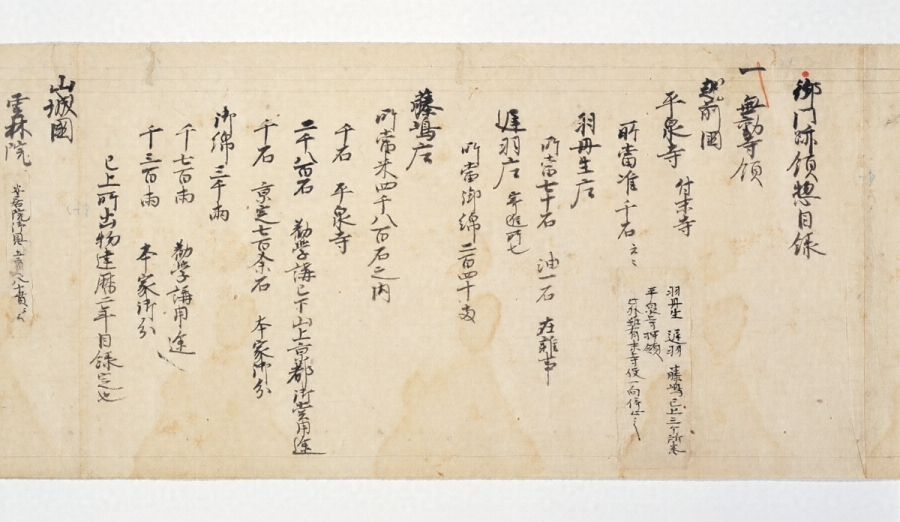 御門跡領惣目録
一 無動寺領
越前国
平泉寺 付末寺
所当准千石云々
羽丹生 遅羽 藤嶋已上三ケ所来
平泉寺押領
羽丹生庄
所当七十石 油一石 在雑事
遅羽庄 年進所也
所当御綿二百四十支
藤嶋庄
所當米四千八百石之内
千石 平泉寺
二千八百石 勧学講已下山上京都御堂用途
千石 京定七百余石 本家御分
御綿三千両
千七百両 勧学講用途
千三百両 本家御分
已上所出物建暦二年目録定也
山城国
雲林院